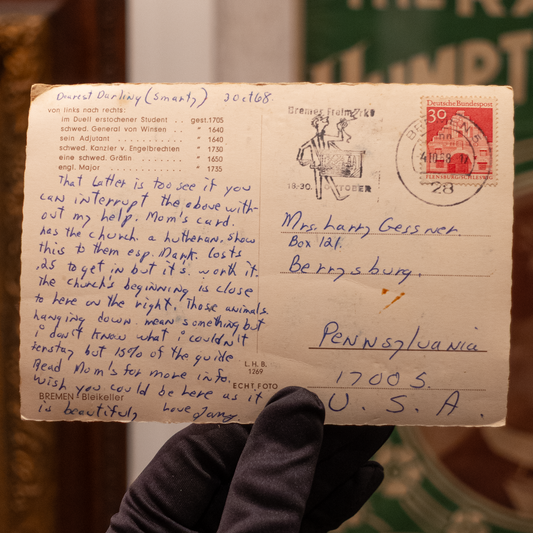 Dearest Darling (Smarty) 3 Oct 68
von links nach rechts:
im Duell erstochener Student . . gest. 1705
schwed. General von Winsen . . " 1640
sein Adjutant . . . . . . . " 1640
schwed. Kanzler v. Engelbrechten " 1730
eine schwed. Gräfin . . . . . " 1650
engl. Major . . . . . . . . " 1735
That latter is too see if you
can interrupt the above with-
out my help. Mom's card.
has the church. a Lutheran. Show
this to them esp. Mark. Costs
.25 to get in but it's. worth it.
The church's beginning is close
to here on the right. Those animals
hanging down mean something but
i don't know what i couldn't
but 15% of the guide
Read Mom's for more info.
Wish you could be here as it
is beautiful, Love
BREMEN · Bleikeller
L. H. B.
1769
ECHT FOTO
Bremer Freimarkt
18.-30. OKTOBER
BREMEN 5
4.10.68. 17
28
Deutsche Bundespost
30
FLENSBURG/SCHLESWIG
Mrs. Larry Gessner.
Box 121.
Berrysburg.
Pennsylvania
17005.
U. S. A.
THE RA
HUMPT